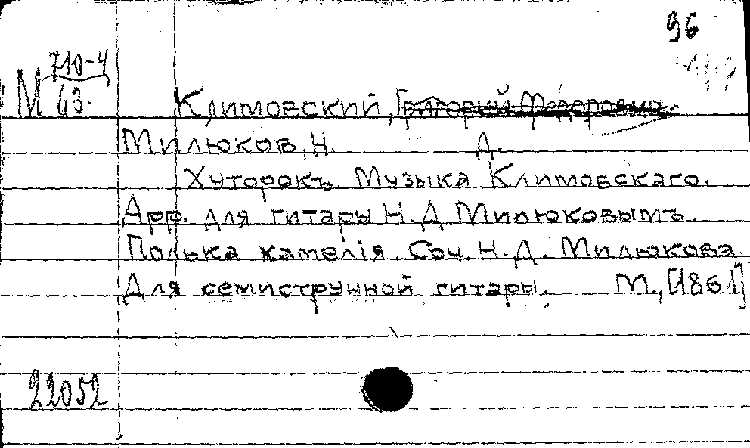 96
М 710-4
63.
Климовский, Григорий Федорович.
Милюков, Н. Д.
Хуторокъ. Музыка Климовскаго.
Арр. для гитары Н. Д. Милюковымъ.
Полька камелія. Соч. Н. Д. Милюкова
Для семиструнной гитары. М., [1861]
22052